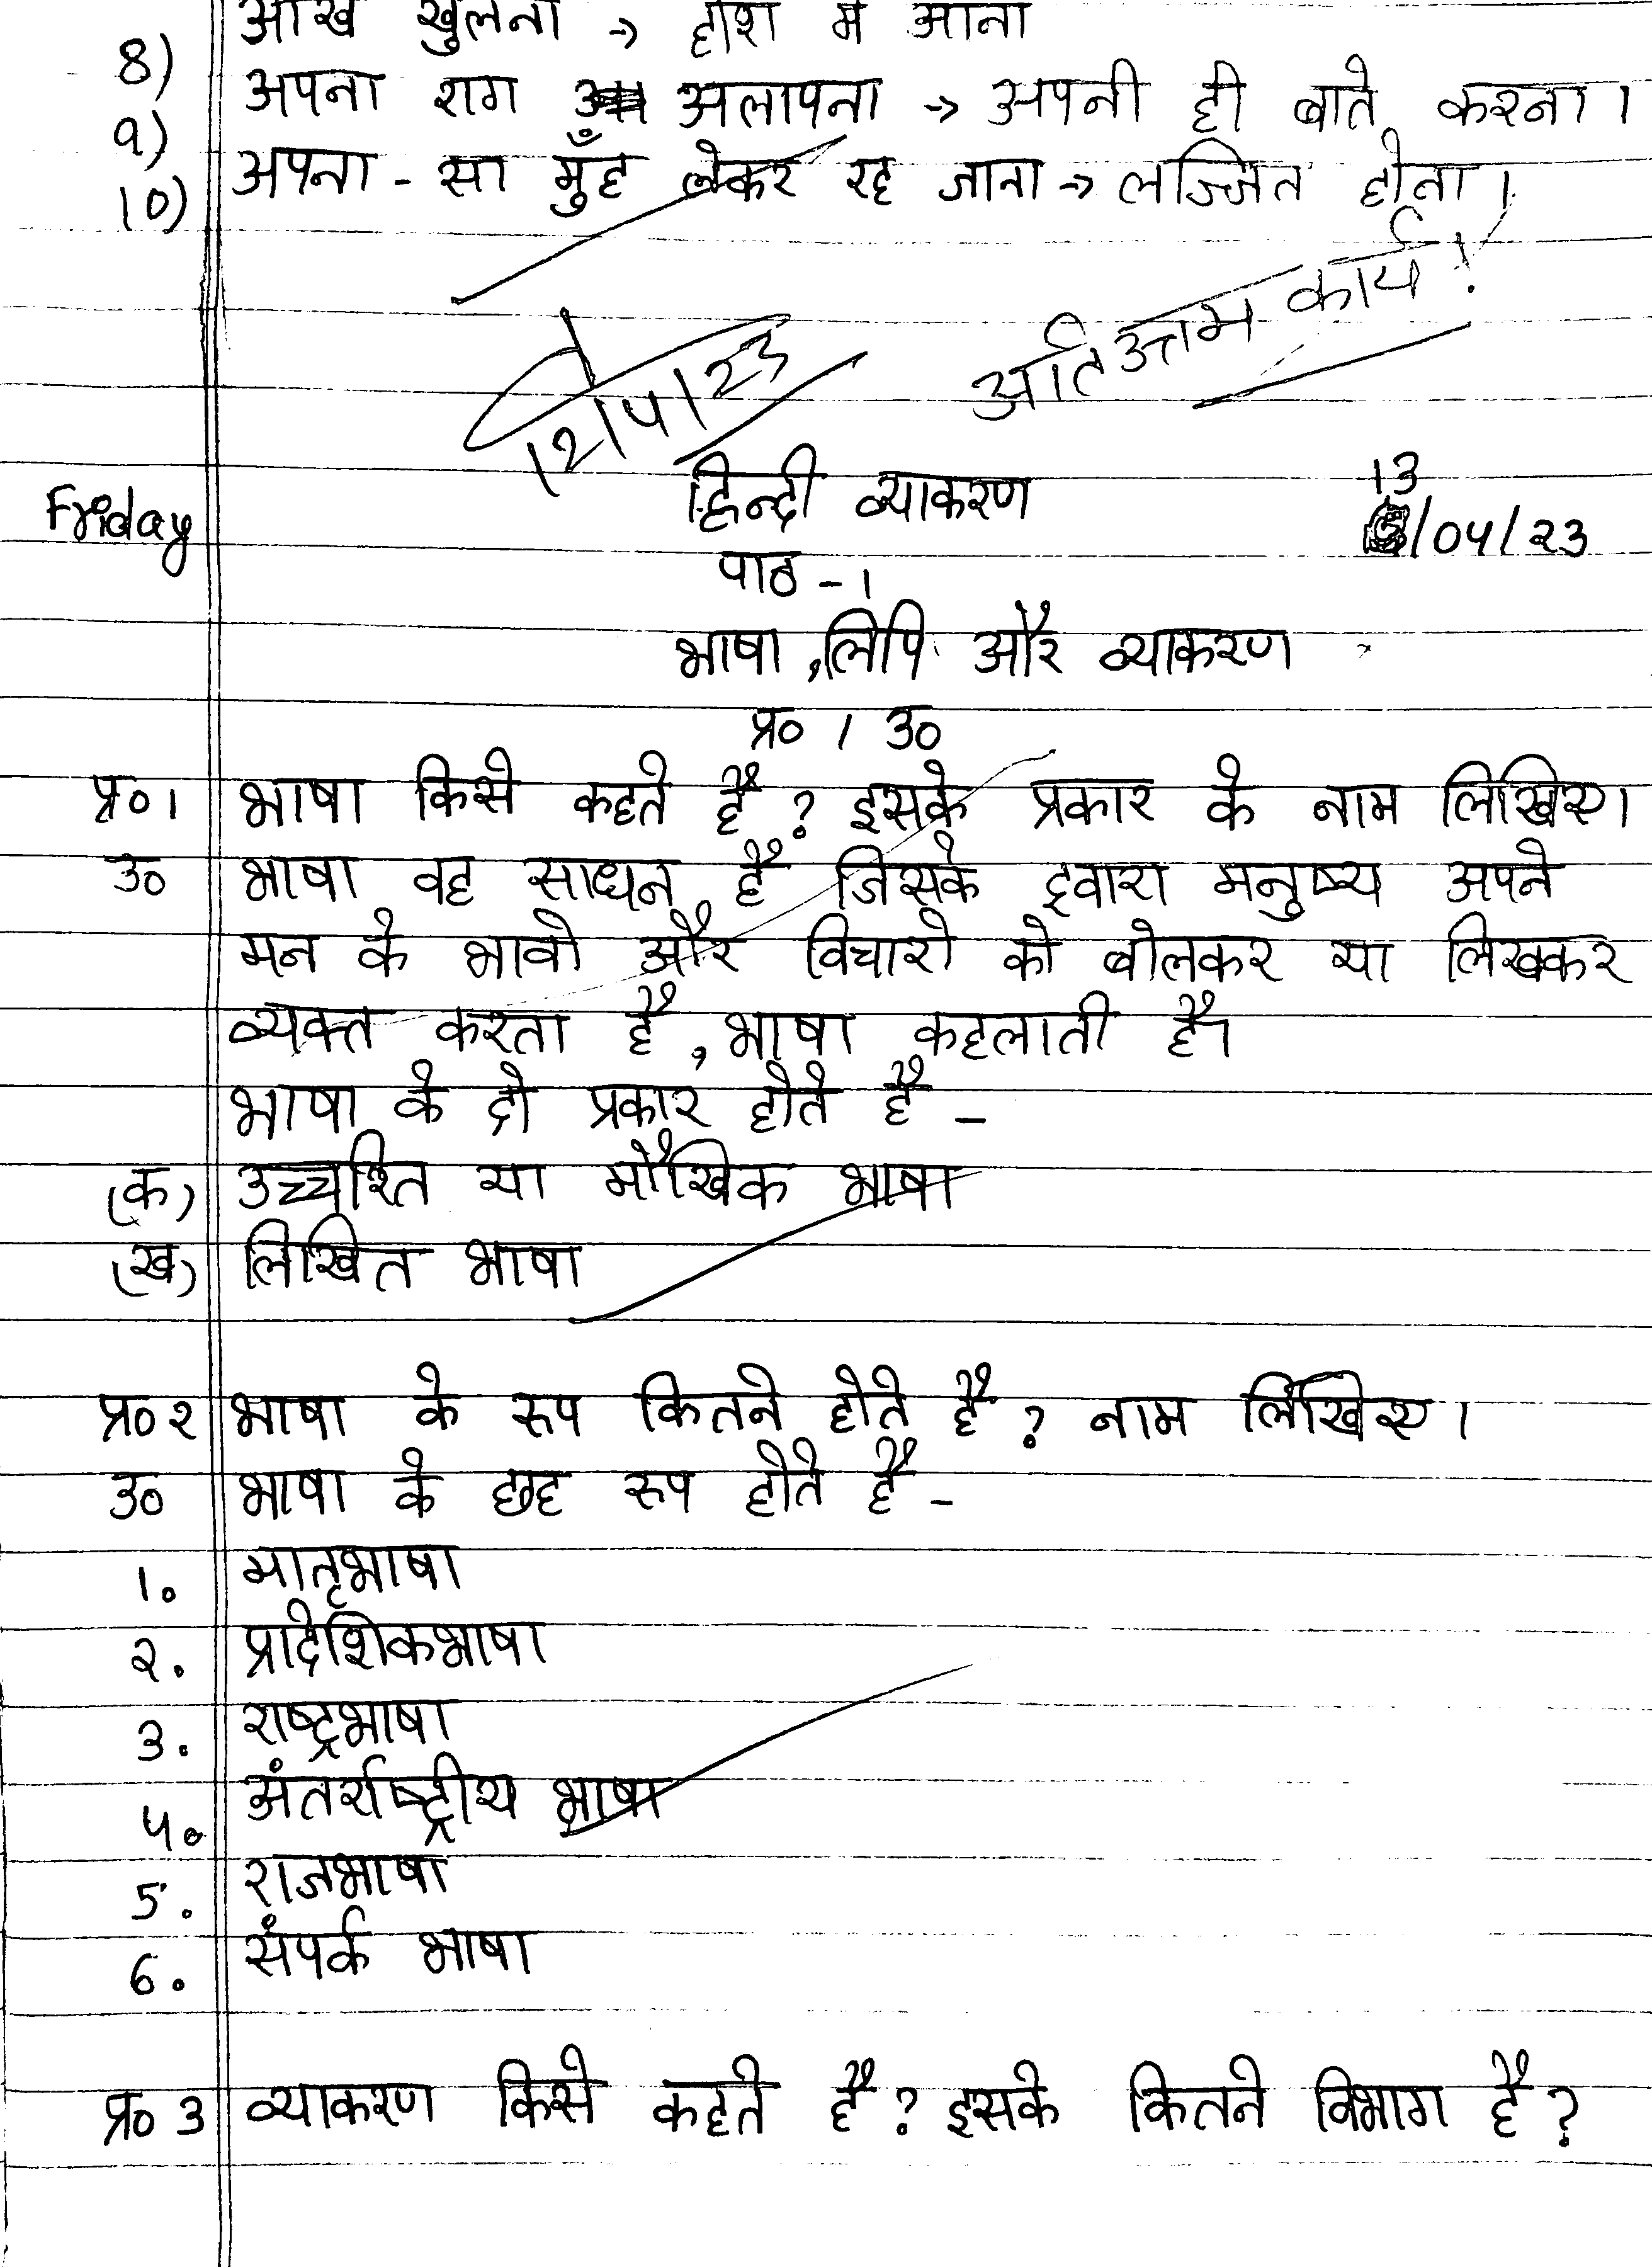 8) आँख खुलना → होश में आना
9) अपना राग अलापना → अपनी ही बाते करना।
10) अपना - सा मुँह लेकर रह जाना → लज्जित होना।
अति उत्तम कार्य!
12/4/23
Friday हिन्दी व्याकरण 13/04/23
पाठ - 1
भाषा, लिपि और व्याकरण
प्र० / उ०
प्र०1 भाषा किसे कहते हैं? इसके प्रकार के नाम लिखिए।
उ० भाषा वह साधन है जिसके द्वारा मनुष्य अपने
मन के भावो और विचारो को बोलकर या लिखकर
व्यक्त करता है, भाषा कहलाती है।
भाषा के दो प्रकार होते है -
(क) उच्चरित या मौखिक भाषा
(ख) लिखित भाषा
प्र०२ भाषा के रूप कितने होते है? नाम लिखिए।
उ० भाषा के छह रूप होते है -
1. मातृभाषा
२. प्रादेशिकभाषा
3. राष्ट्रभाषा
4. अंतर्राष्ट्रीय भाषा
5. राजभाषा
6. संपर्क भाषा
प्र० 3 व्याकरण किसे कहते है? इसके कितने विभाग है?